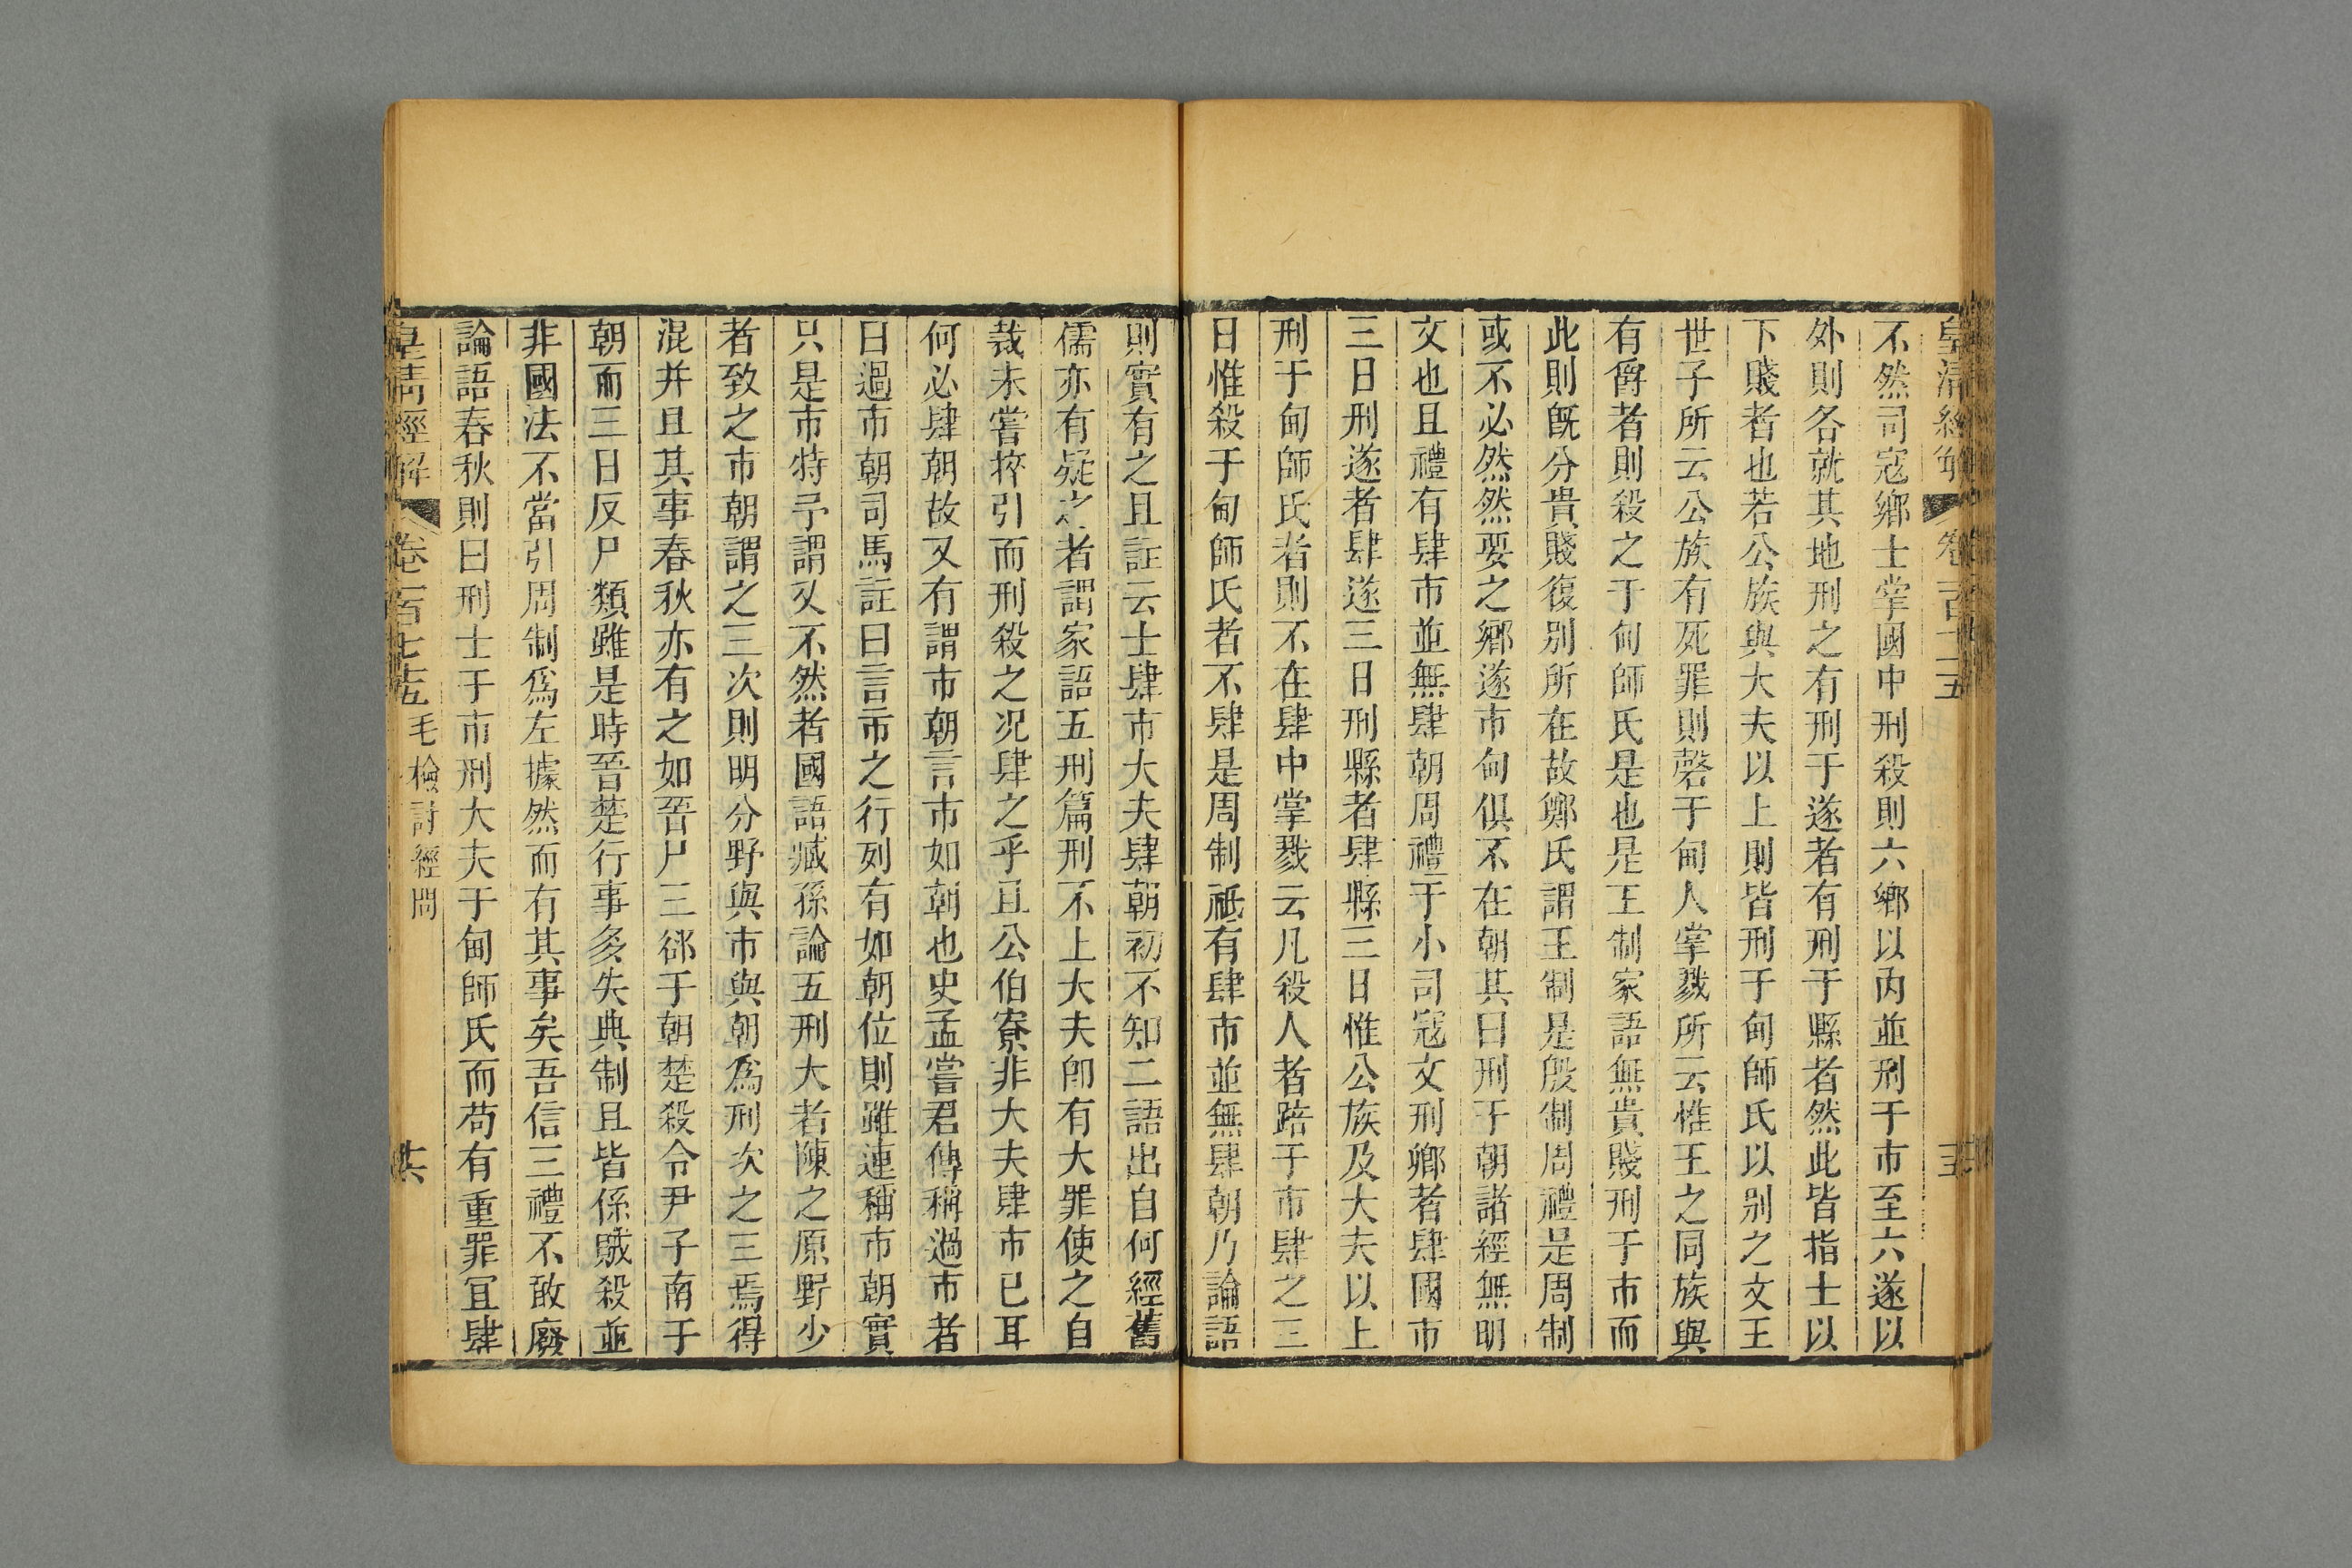 不然司寇鄉士掌國中刑殺則六鄉以內並刑于市至六遂以
外則各就其地刑之有刑于遂者有刑于縣者然此皆指士以
下賤者也若公族與大夫以上則皆刑于甸師氏以别之文王
世子所云公族有死罪則磬于甸人掌戮所云惟王之同族與
有爵者則殺之于甸師氏是也是王制家語無貴賤刑于市而
此則旣分貴賤復别所在故鄭氏謂王制是殷制周禮是周制
或不必然然要之鄉遂市甸俱不在朝其曰刑于朝諸經無明
文也且禮有肆市並無肆朝周禮于小司寇文刑鄉者肆國市
三日刑遂者肆遂三日刑縣者肆縣三日惟公族及大夫以上
刑于甸師氏者則不在肆中掌戮云凡殺人者踣于市肆之三
日惟殺于甸師氏者不肆是周制祇有肆市並無肆朝乃論語
則實有之且註云士肆市大夫肆朝初不知二語出自何經舊
儒亦有疑之者謂家語五刑篇刑不上大夫卽有大罪使之自
裁未嘗捽引而刑殺之况肆之乎且公伯寮非大夫肆市已耳
何必肆朝故又有謂市朝言市如朝也史孟嘗君傳稱過市者
曰過市朝司馬註曰言市之行列有如朝位則雖連稱市朝實
只是市特予謂又不然者國語臧孫論五刑大者陳之原野少
者致之市朝謂之三次則明分野與市與朝爲刑次之三焉得
混并且其事春秋亦有之如晉尸三郤于朝楚殺令尹子南于
朝而三日反尸類雖是時晉楚行事多失典制且皆係賊殺並
非國法不當引周制爲左據然而有其事矣吾信三禮不敢廢
論語春秋則曰刑士于市刑大夫于甸師氏而苟有重罪宜肆
皇清經解 卷一百七十五 毛檢討經問 十六